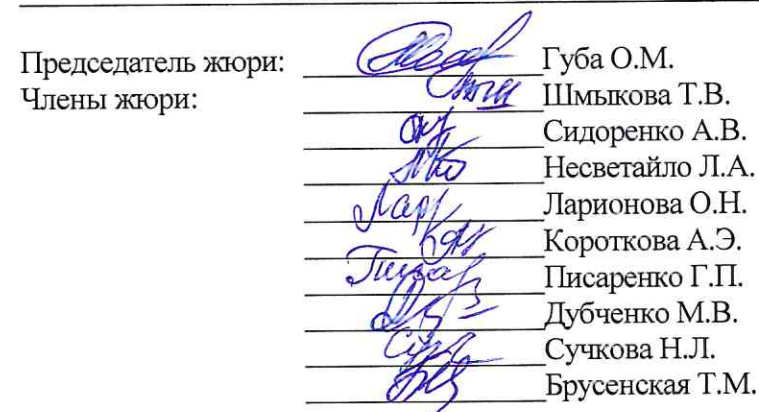 Председатель жюри: Губа О.М.
Члены жюри: Шмыкова Т.В.
Сидоренко А.В.
Несветайло Л.А.
Ларионова О.Н.
Короткова А.Э.
Писаренко Г.П.
Дубченко М.В.
Сучкова Н.Л.
Брусенская Т.М.